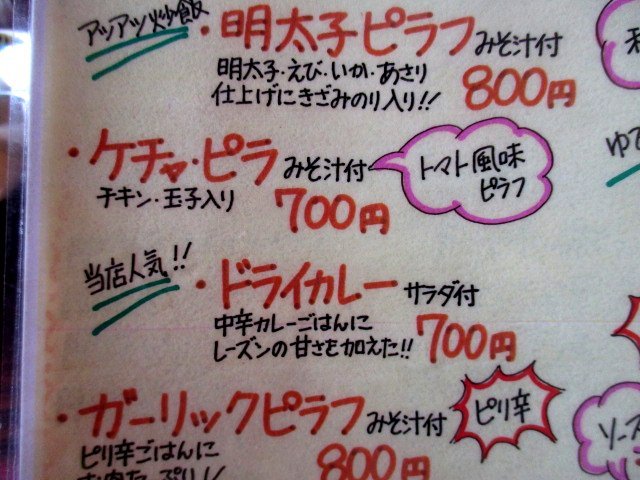 アツアツ炒飯
・明太子ピラフ みそ汁付
明太子・えび・いか・あさり
仕上げにきざみのり入り!! 800円
・ケチャ・ピラ みそ汁付
チキン・玉子入り 700円
トマト風味
ピラフ
当店人気!!
・ドライカレー サラダ付
中辛カレーごはんに
レーズンの甘さを加えた!! 700円
・ガーリックピラフ みそ汁付
ピリ辛
ピリ辛ごはんに
800円
ゆで
ソース